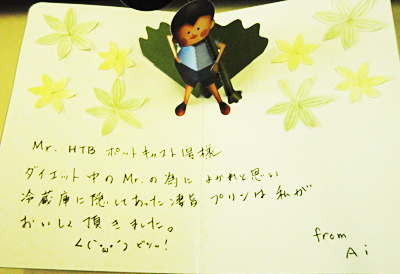 Mr. HTB ポットキャスト店様
ダイエット中のMr.の為に よかれと思い
冷蔵庫に隠してあった凄旨プリンは私が
おいしく頂きました。
く(`・ω・´) ビシッ!
from
Ai